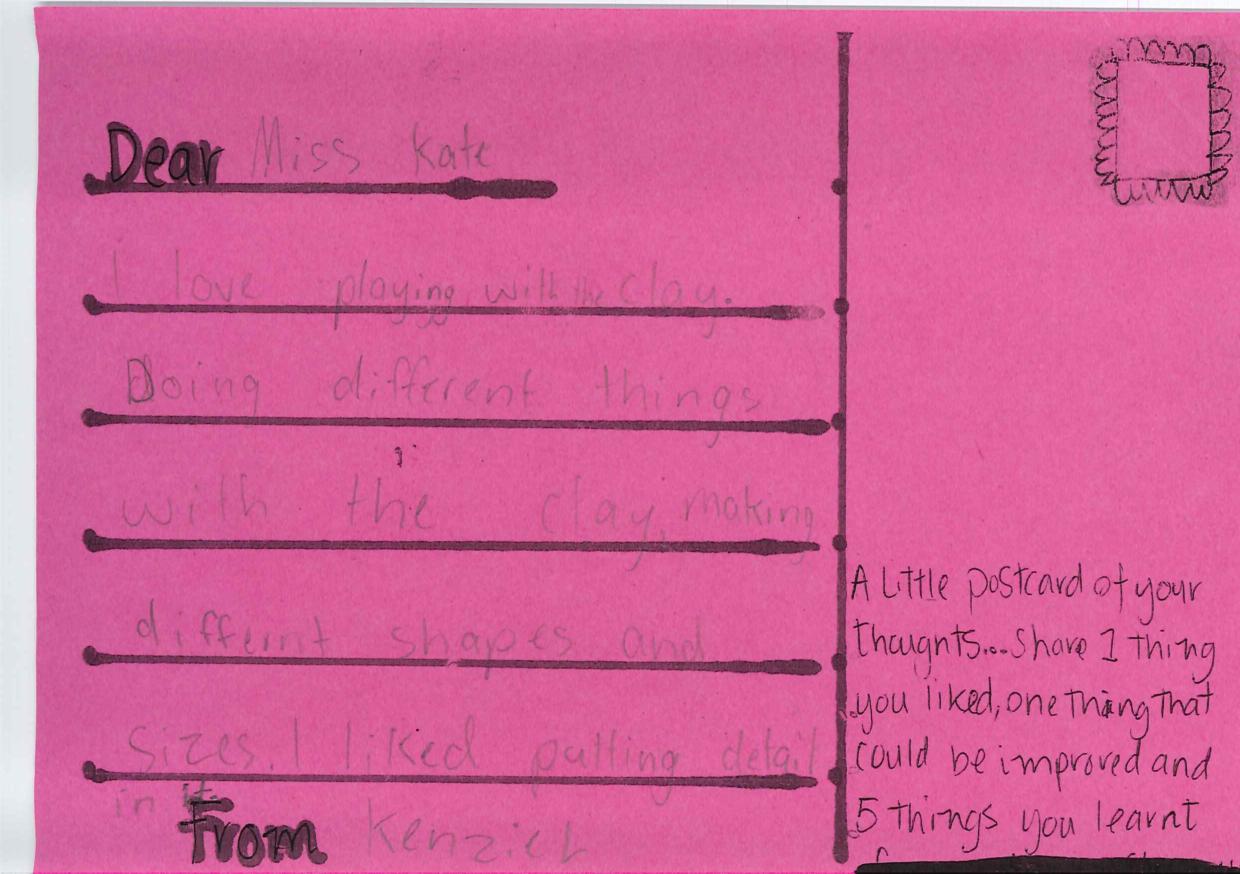 Dear Miss Kate
I love playing with the clay.
Doing different things
with the clay, making
differnt shapes and
sizes. I liked putting detail
in it.
From Kenzie L
A Little postcard of your
thoughts...Share 1 thing
you liked, one thing that
could be improved and
5 things you learnt